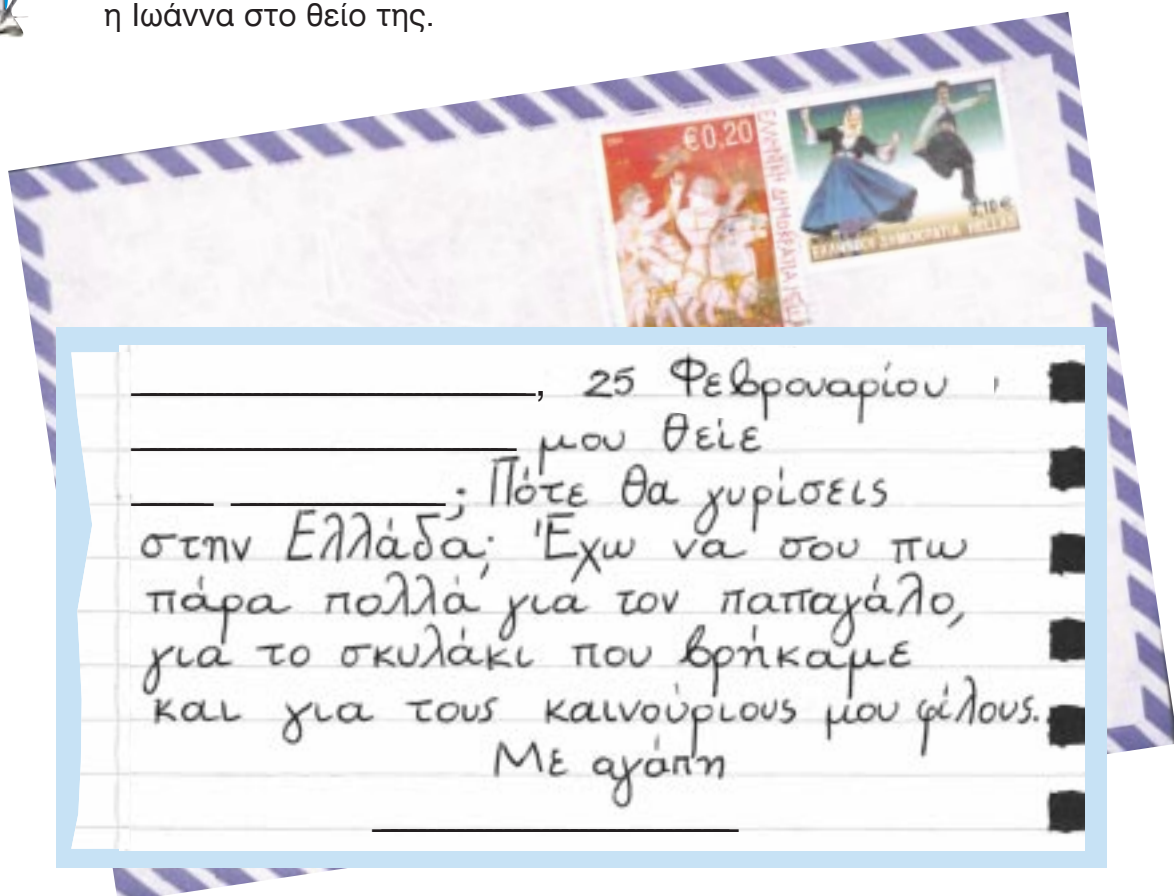 η Ιωάννα στο θείο της.
€0,20
ΕΛΛΗΝΙΚΗ ΔΗΜΟΚΡΑΤΙΑ
0,10€
ΕΛΛΗΝΙΚΗ ΔΗΜΟΚΡΑΤΙΑ HELLAS
, 25 Φεβρουαρίου
μου θείε
; Πότε θα γυρίσεις
στην Ελλάδα; Έχω να σου πω
πάρα πολλά για τον παπαγάλο,
για το σκυλάκι που βρήκαμε
και για τους καινούριους μου φίλους.
Με αγάπη